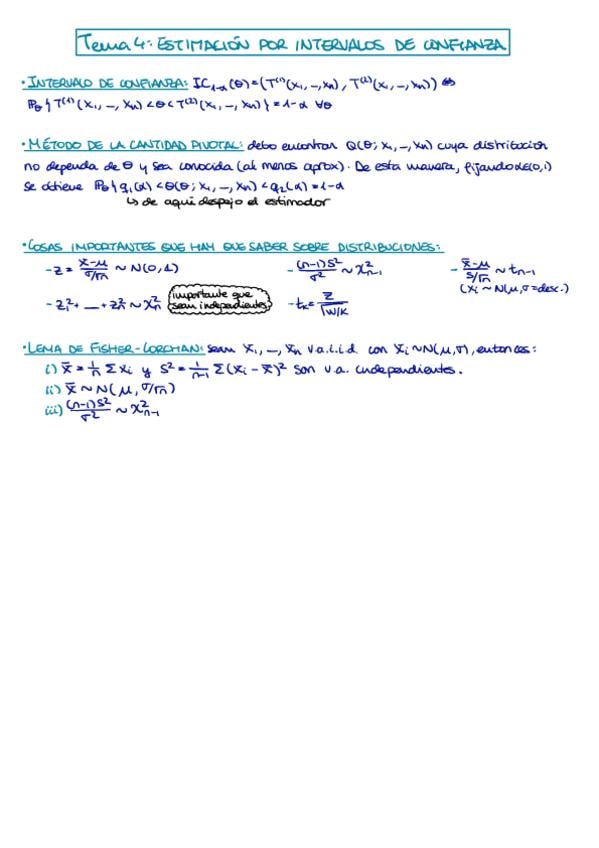 Tema 4: ESTIMACIÓN POR INTERVALOS DE CONFIANZA
· INTERVALO DE CONFIANZA: IC₁₋α(θ) = (T⁽¹⁾(x₁, _, xₙ), T⁽²⁾(x₁, _, xₙ)) ⇔
ℙθ{T⁽¹⁾(x₁, _, xₙ) < θ < T⁽²⁾(x₁, _, xₙ)} = 1-α ∀θ
· MÉTODO DE LA CANTIDAD PIVOTAL: debo encontrar Q(θ; x₁, _, xₙ) cuya distribución
no dependa de θ y sea conocida (al menos aprox). De esta manera, fijando α∈(0,1)
se obtiene ℙθ{q₁(α) < Q(θ; x₁, _, xₙ) < q₂(α)} = 1-α
↳ de aquí despejo el estimador
· COSAS IMPORTANTES QUE HAY QUE SABER SOBRE DISTRIBUCIONES:
- Z = (x̄-μ)/(σ/√n) ~ N(0,1) - (n-1)S²/σ² ~ χ²ₙ₋₁ - (x̄-μ)/(S/√n) ~ tₙ₋₁
(xᵢ ~ N(μ, σ=desc.)
- Z₁² + __ + Zₙ² ~ χ²ₙ (importante que sean independientes) - tₖ = Z/√(W/K)
· LEMA DE FISHER-CORCHAN: sean X₁, _, Xₙ v.a.i.i.d con Xᵢ ~ N(μ, σ), entonces:
i) x̄ = 1/n Σ xᵢ y S² = 1/(n-1) Σ(xᵢ - x̄)² son v.a. independientes.
ii) x̄ ~ N(μ, σ/√n)
iii) (n-1)S²/σ² ~ χ²ₙ₋₁